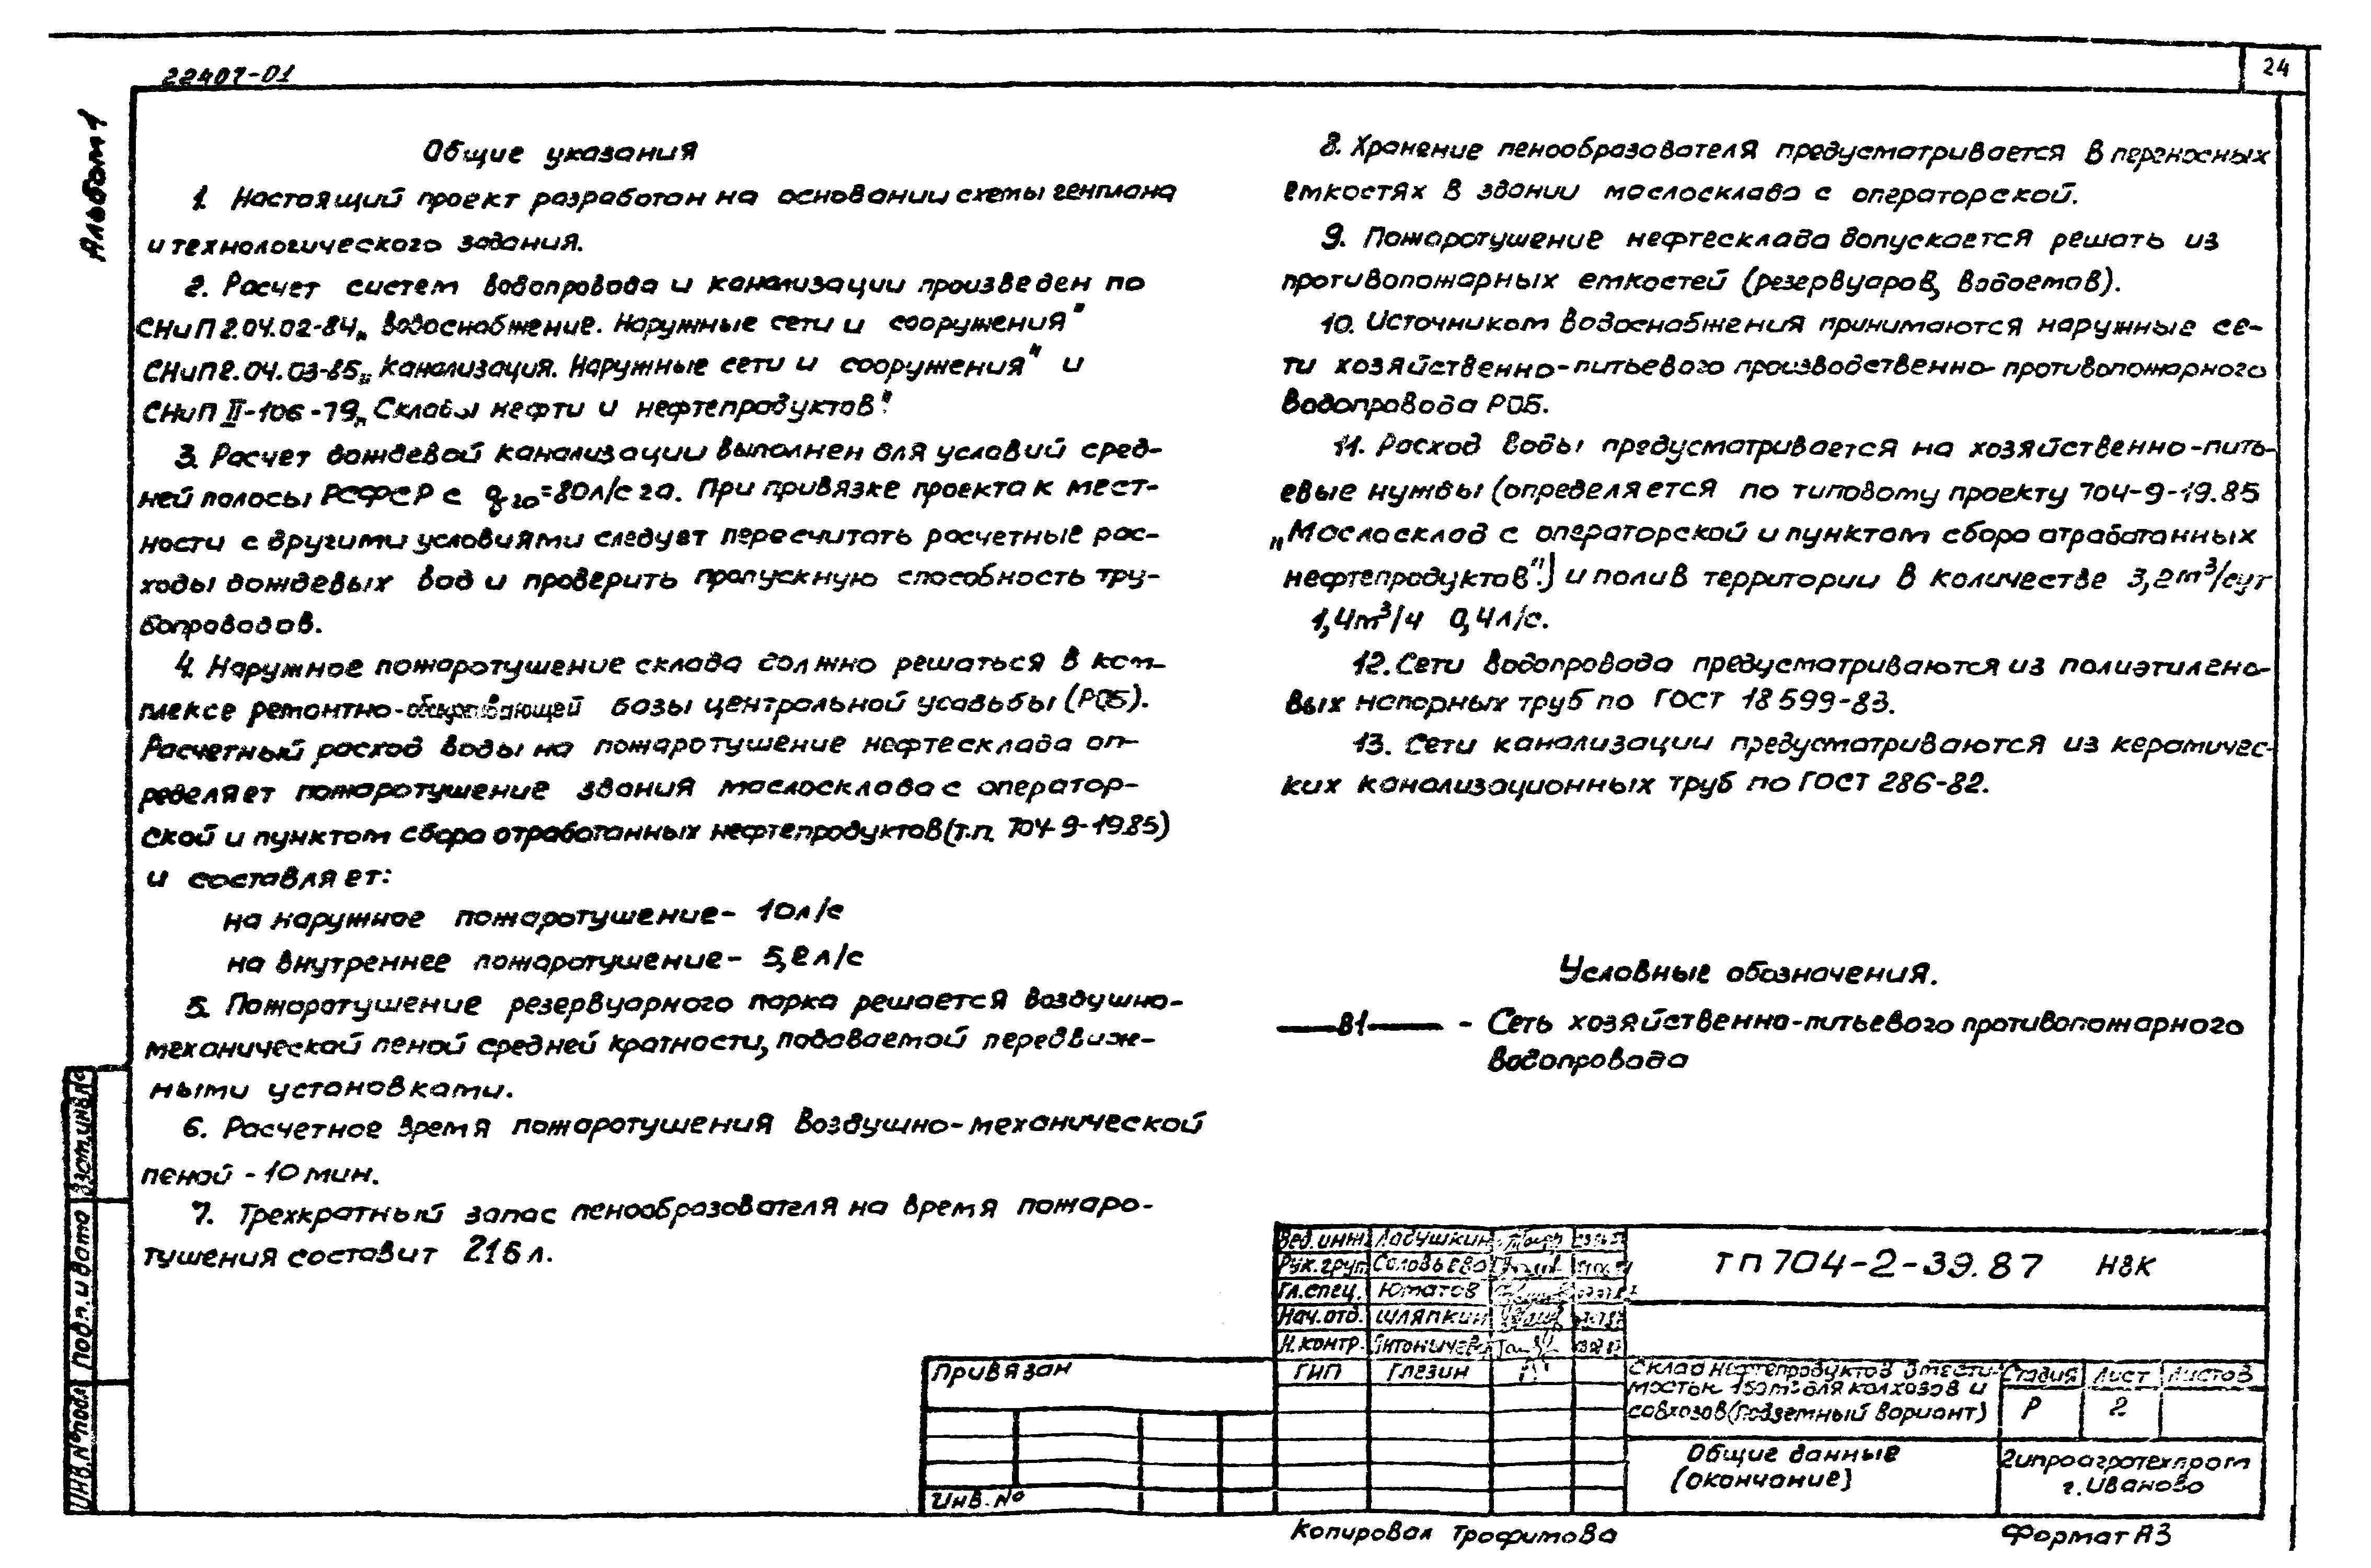 22407-01
24
Альбом 1
Общие указания
1. Настоящий проект разработан на основании схемы генплана
и технологического задания.
2. Расчет систем водопровода и канализации произведен по
СНиП 2.04.02-84 „Водоснабжение. Наружные сети и сооружения"
СНиП 2.04.03-85 „Канализация. Наружные сети и сооружения" и
СНиП II-106-79 „Склады нефти и нефтепродуктов".
3. Расчет дождевой канализации выполнен для условий сред-
ней полосы РСФСР с q20=80л/с га. При привязке проекта к мест-
ности с другими условиями следует пересчитать расчетные рас-
ходы дождевых вод и проверить пропускную способность тру-
бопроводов.
4. Наружное пожаротушение склада должно решаться в ком-
плексе ремонтно-обслуживающей базы центральной усадьбы (РОБ).
Расчетный расход воды на пожаротушение нефтесклада оп-
ределяет пожаротушение здания маслосклада с оператор-
ской и пунктом сбора отработанных нефтепродуктов (т.п. 704-9-19.85)
и составляет:
на наружное пожаротушение - 10л/с
на внутреннее пожаротушение - 5,2л/с
5. Пожаротушение резервуарного парка решается воздушно-
механической пеной средней кратности, подаваемой передвиж-
ными установками.
6. Расчетное время пожаротушения воздушно-механической
пеной - 10 мин.
7. Трехкратный запас пенообразователя на время пожаро-
тушения составит 216 л.
8. Хранение пенообразователя предусматривается в переносных
емкостях в здании маслосклада с операторской.
9. Пожаротушение нефтесклада допускается решать из
противопожарных емкостей (резервуаров, водоемов).
10. Источником водоснабжения принимаются наружные се-
ти хозяйственно-питьевого производственно-противопожарного
водопровода РОБ.
11. Расход воды предусматривается на хозяйственно-пить-
евые нужды (определяется по типовому проекту 704-9-19.85
„Маслосклад с операторской и пунктом сбора отработанных
нефтепродуктов".) и полив территории в количестве 3,2м³/сут
1,4м³/ч 0,4л/с.
12. Сети водопровода предусматриваются из полиэтилено-
вых напорных труб по ГОСТ 18599-83.
13. Сети канализации предусматриваются из керамичес-
ких канализационных труб по ГОСТ 286-82.
Условные обозначения.
—В1— - Сеть хозяйственно-питьевого противопожарного
водопровода
Взам. инв. №
Подп. и дата
Инв. № подл.
Привязан
Инв. №
Вед. инж. Ладушкин
Рук. груп. Соловьева
Гл. спец. Юматов
Нач. отд. Шляпкин
Н. контр.
ГИП Глезин
ТП 704-2-39.87 НВК
Склад нефтепродуктов вмести-
мостью 150м³ для колхозов и
совхозов (подземный вариант)
Стадия Лист Листов
Р 2
Общие данные
(окончание)
Гипроагротехпром
г. Иваново
Копировал Трофимова
Формат А3